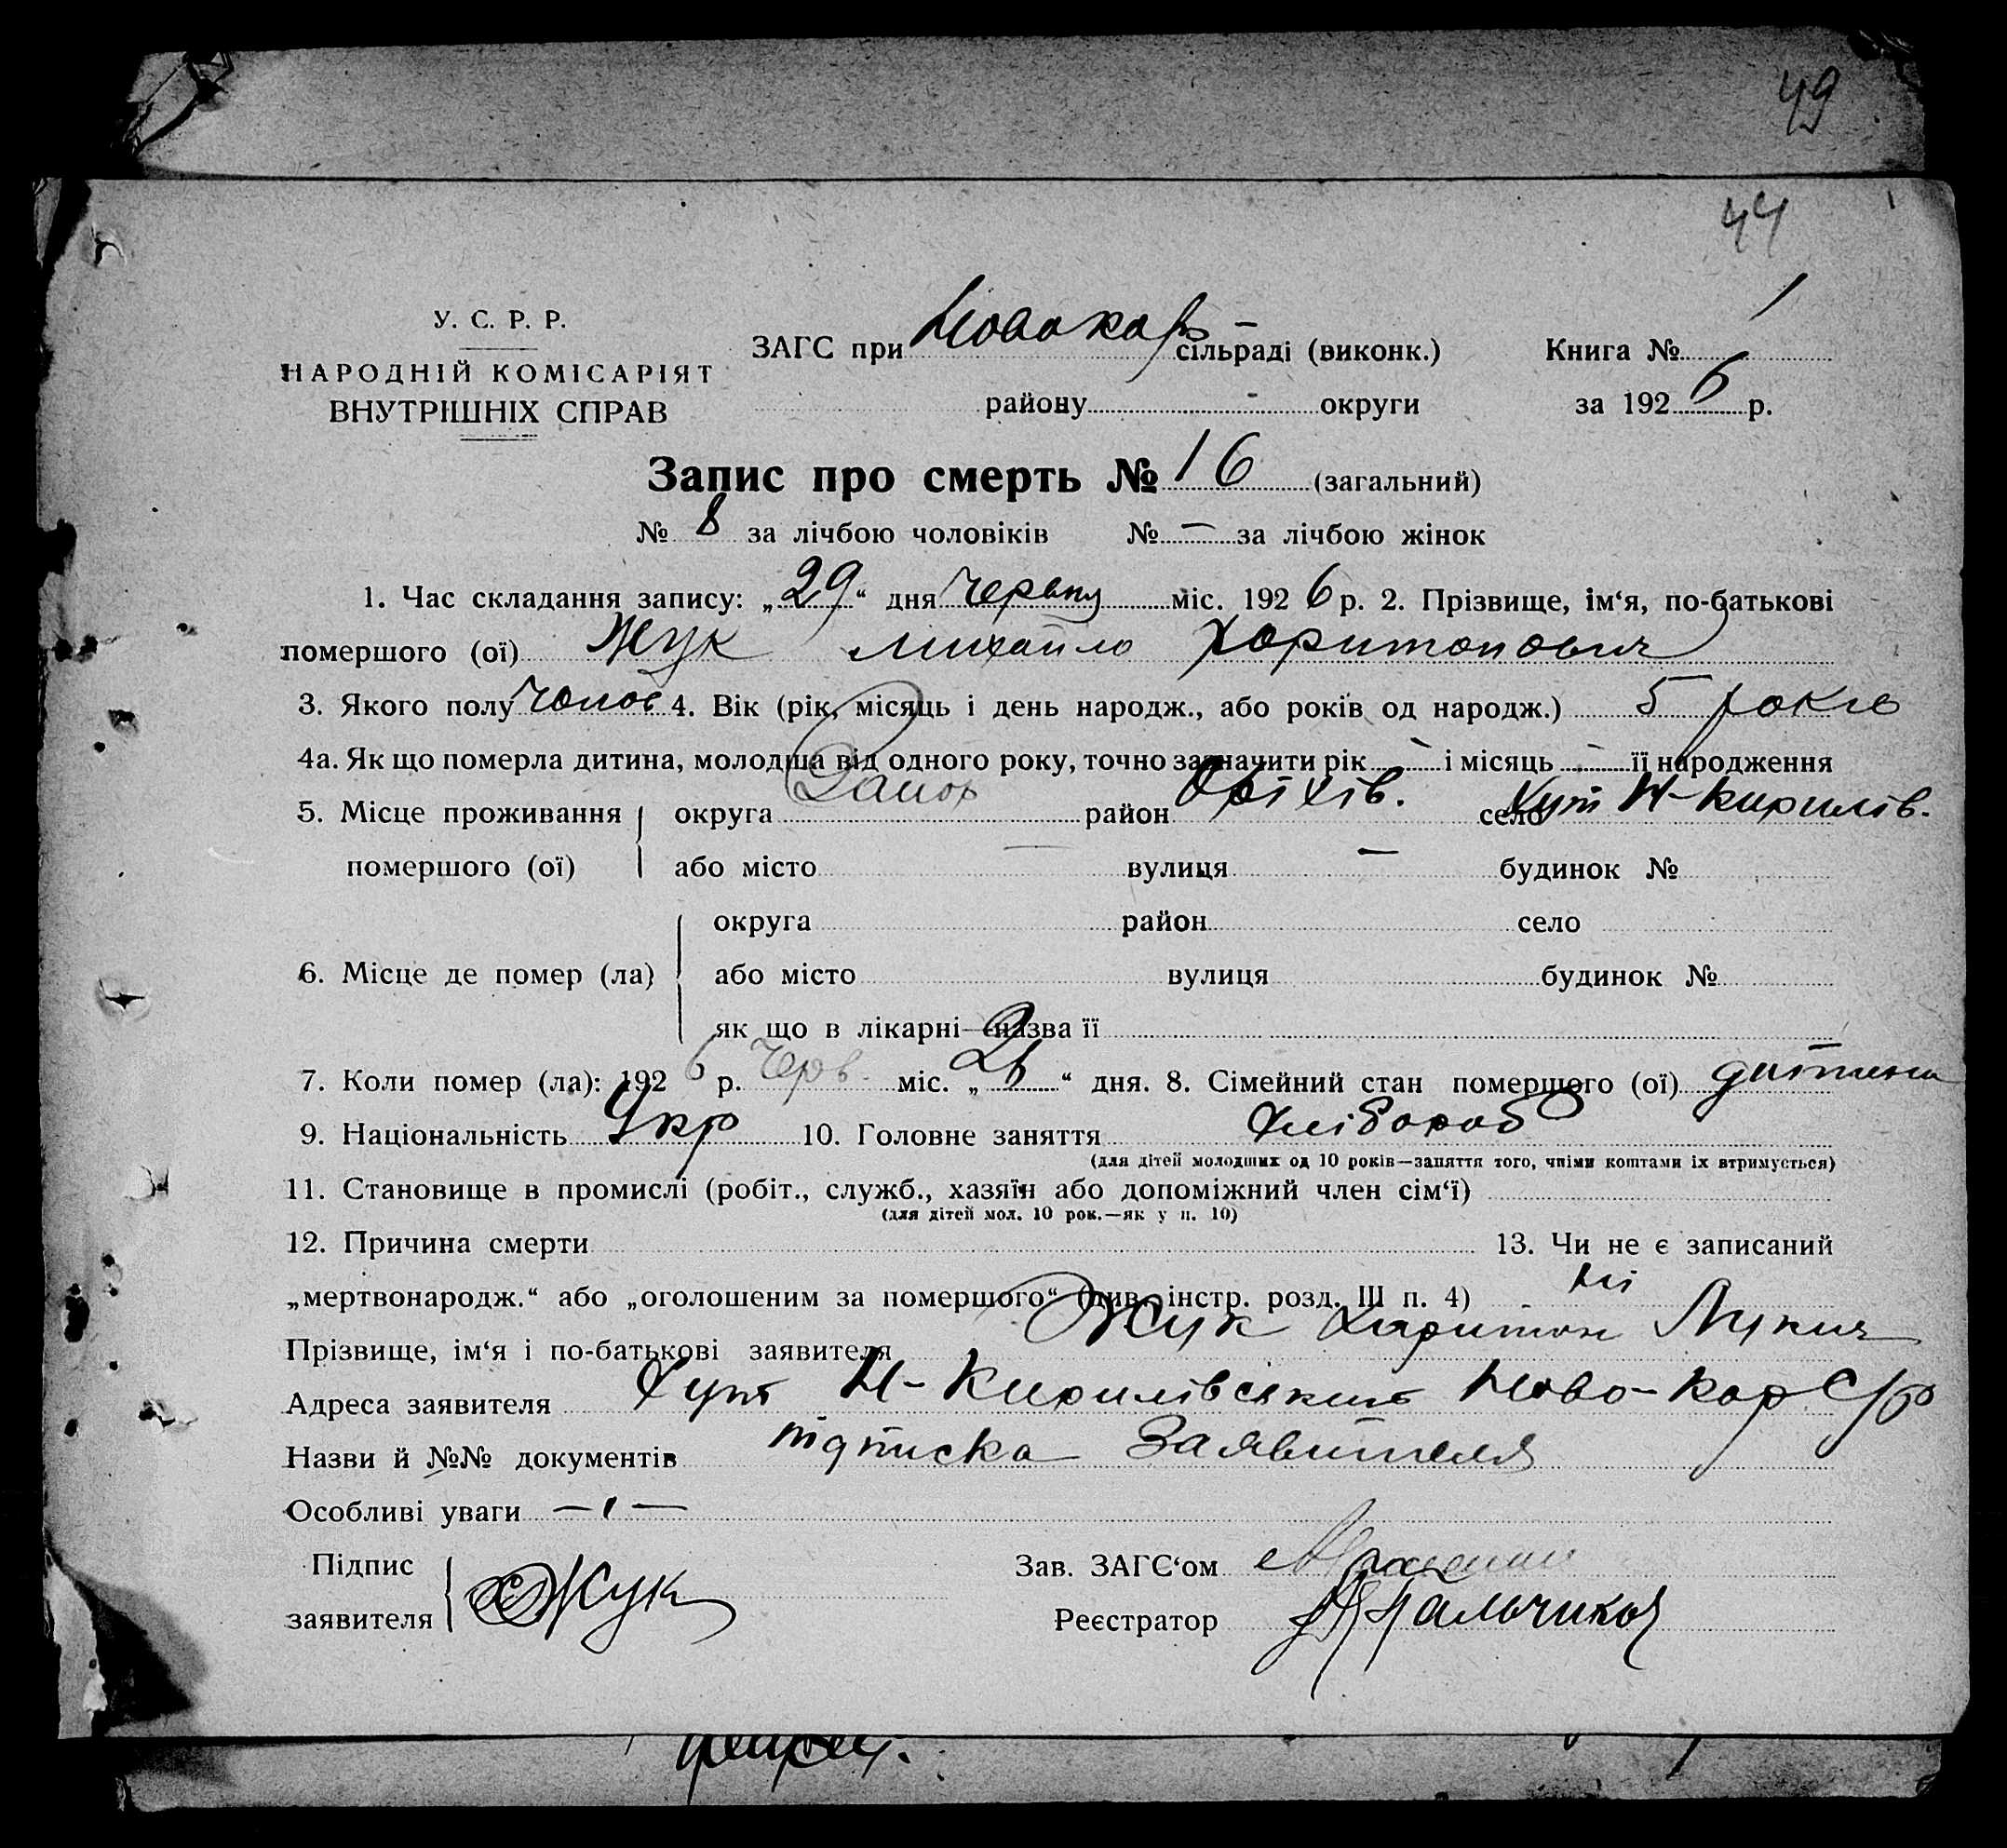 49
44
У. С. Р. Р.
НАРОДНІЙ КОМІСАРІЯТ
ВНУТРІШНІХ СПРАВ
ЗАГС при Новокар- сільраді (виконк.) Книга № 1
району - округи за 1926 р.
Запис про смерть № 16 (загальний)
№ 8 за лічбою чоловіків № — за лічбою жінок
1. Час складання запису: „29“ дня Червня міс. 1926 р. 2. Прізвище, ім‘я, по-батькові
помершого (ої) Жук Михайло Харитонович
3. Якого полу Чолов 4. Вік (рік, місяць і день народж., або років од народж.) 5 років
4а. Як що померла дитина, молодша від одного року, точно зазначити рік - і місяць - її народження
5. Місце проживання округа Запор район Оріхів. село Хут Н-Кирилів.
помершого (ої) або місто — вулиця — будинок №
округа район село
6. Місце де помер (ла) або місто вулиця будинок №
як що в лікарні—назва її
7. Коли помер (ла): 1926 р. Черв. міс. „ “ дня. 8. Сімейний стан помершого (ої) дитина
9. Національність Укр 10. Головне заняття Хлібороб
(для дітей молодших од 10 років—заняття того, чиїми коштами їх втримується)
11. Становище в промислі (робіт., служб., хазяїн або допоміжний член сім‘ї)
(для дітей мол. 10 рок.—як у п. 10)
12. Причина смерти 13. Чи не є записаний
„мертвонародж.“ або „оголошеним за помершого“ (див. інстр. розд. III п. 4) ні
Прізвище, ім‘я і по-батькові заявителя Жук Харитон Лукич
Адреса заявителя Хут Н-Кирилівський Ново-Кар С/р
Назви й №№ документів підписка Заявителя
Особливі уваги —ı—
Підпис Зав. ЗАГС‘ом
заявителя Жук Реєстратор